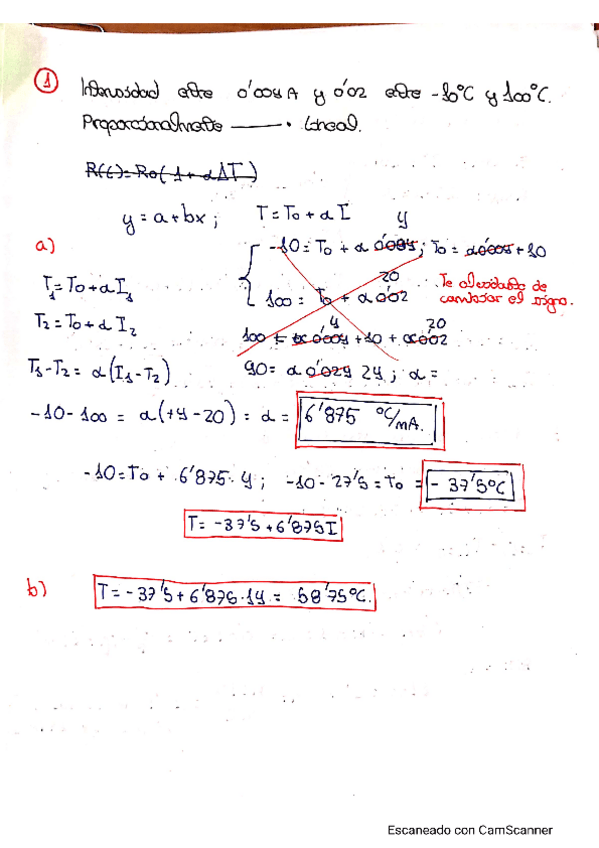 1 Intensidad entre 0'004 A y 0'02 entre -10°C y 100°C.
Proporcionalmente —— · Lineal.
R(t)=Ro(1+αΔT)
y = a+bx ; T = To + α I y
a) -10 = To + α 0'004 ; To = α0'004+10
T1 = To + α I1 20
100 = To + α 0'02
Te olvidaste de
cambiar el signo.
T2 = To + α I2 4 20
100 = α 0'004 + 10 + α 0'02
T1 - T2 = α(I1 - I2) 90 = α 0'024 24 ; α =
-10 - 100 = α(+4 - 20) = α = 6'875 °C/mA.
-10 = To + 6'875 · 4 ; -10 - 27'5 = To = - 37'5°C
T = -37'5 + 6'875 I
b) T = -37'5 + 6'876 · 14 = 58'75°C.
Escaneado con CamScanner